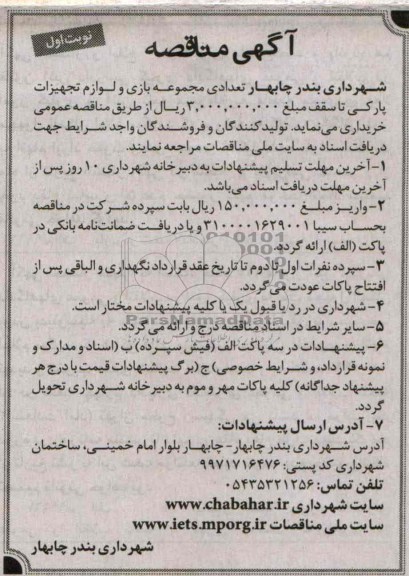 نوبت اول
آگهی مناقصه
شهرداری بندر چابهار تعدادی مجموعه بازی و لوازم تجهیزات
پارکی تا سقف مبلغ ۳,۰۰۰,۰۰۰,۰۰۰ ریال از طریق مناقصه عمومی
خریداری می‌نماید. تولیدکنندگان و فروشندگان واجد شرایط جهت
دریافت اسناد به سایت ملی مناقصات مراجعه نمایند.
۱- آخرین مهلت تسلیم پیشنهادات به دبیرخانه شهرداری ۱۰ روز پس از
آخرین مهلت دریافت اسناد می‌باشد.
۲- واریز مبلغ ۱۵۰,۰۰۰,۰۰۰ ریال بابت سپرده شرکت در مناقصه
بحساب سیبا ۳۱۰۰۰۰۱۶۲۹۰۰۱ و یا دریافت ضمانت‌نامه بانکی در
پاکت (الف) ارائه گردد.
۳- سپرده نفرات اول تا دوم تا تاریخ عقد قرارداد نگهداری و الباقی پس از
افتتاح پاکات عودت می گردد.
۴- شهرداری در رد یا قبول یک یا کلیه پیشنهادات مختار است.
۵- سایر شرایط در اسناد مناقصه درج و ارائه می گردد.
ParsNamadData
۶- پیشنهادات در سه پاکت الف (فیش سپرده) ب (اسناد و مدارک و
نمونه قرارداد، و شرایط خصوصی) ج (برگ پیشنهادات قیمت با درج هر
پیشنهاد جداگانه) کلیه پاکات مهر و موم به دبیرخانه شهرداری تحویل
گردد.
۷- آدرس ارسال پیشنهادات:
آدرس شهرداری بندر چابهار- چابهار بلوار امام خمینی، ساختمان
شهرداری کد پستی: ۹۹۷۱۷۱۶۴۷۶
تلفن تماس: ۰۵۴۳۵۳۲۱۲۵۶
سایت شهرداری www.chabahar.ir
سایت ملی مناقصات www.iets.mporg.ir
شهرداری بندر چابهار